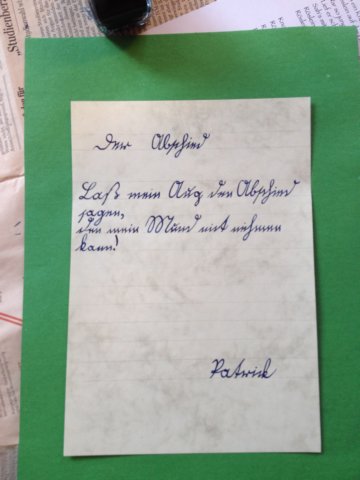 Der Abschied
Laß mein Aug den Abschied
sagen,
den mein Mund nit nehmen
kann!
Patrick
Studienber